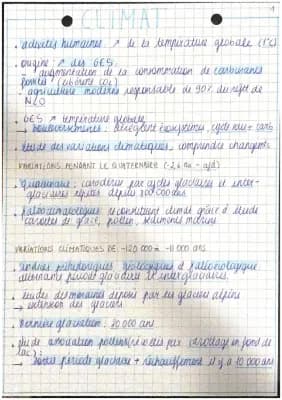 CLIMAT
• activités humaines : ↗ de la température globale (1°C)
• origine : ↗ des GES :
- augmentation de la consommation de carburants
fossiles (libèrent CO₂)
- agriculture moderne responsable de 90% du rejet de
N₂O
• GES ↗ température globale
→ bouleversements : écosystèmes, cycle
• étude des variations climatiques, comprendre changements
VARIATIONS PENDANT LE QUATERNAIRE (-2,6 Ma - ajd)
• quaternaire : caractérisé par cycles glaciaires et inter-
glaciaires répétés depuis 800 000 ans
• paléoclimatologues reconstituent climat grâce à étude
carottes de glace, pollen, sédiments marins
VARIATIONS CLIMATIQUES DE -120 000 à -11 000 ans
• indices préhistoriques géologiques et paléoécologiques
période glaciaire et interglaciaire
• études des moraines déposés par les glaciers alpins
→ extension des glaciers
• dernière glaciation : 20 000 ans
• étude association pollens par carottage en fond de
lac) :
→ période glaciaire + réchauffement il y a 10 000 ans